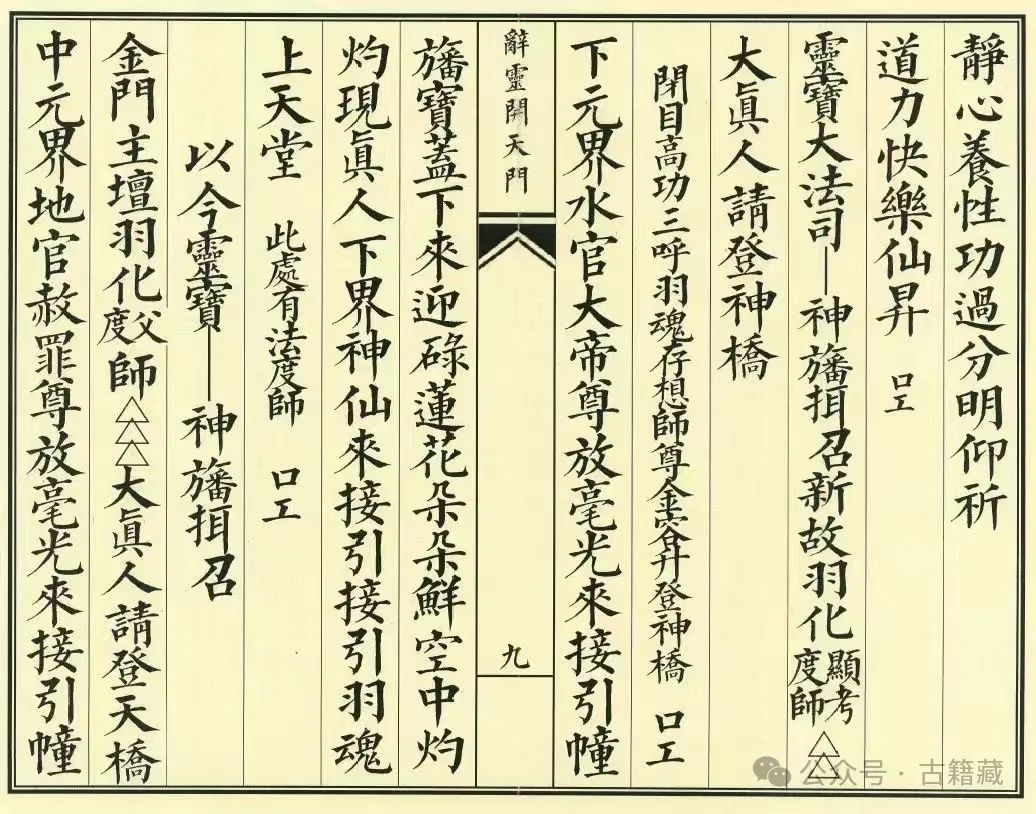 靜心養性功過分明仰祈
道力快樂仙昇 口工
靈寶大法司—神旛揖召新故羽化顯考度師△△
大眞人請登神橋
閉目高功三呼羽魂存想師尊金容昇登神橋 口工
下元界水官大帝尊放毫光來接引幢
辭靈開天門
九
旛寶蓋下來迎碌蓮花朵朵鮮空中灼
灼現眞人下界神仙來接引接引羽魂
上天堂 此處有法度師 口工
以今靈寶—神旛揖召
金門主壇羽化父度師△△△大眞人請登天橋
中元界地官赦罪尊放毫光來接引幢
公众号 · 古籍藏